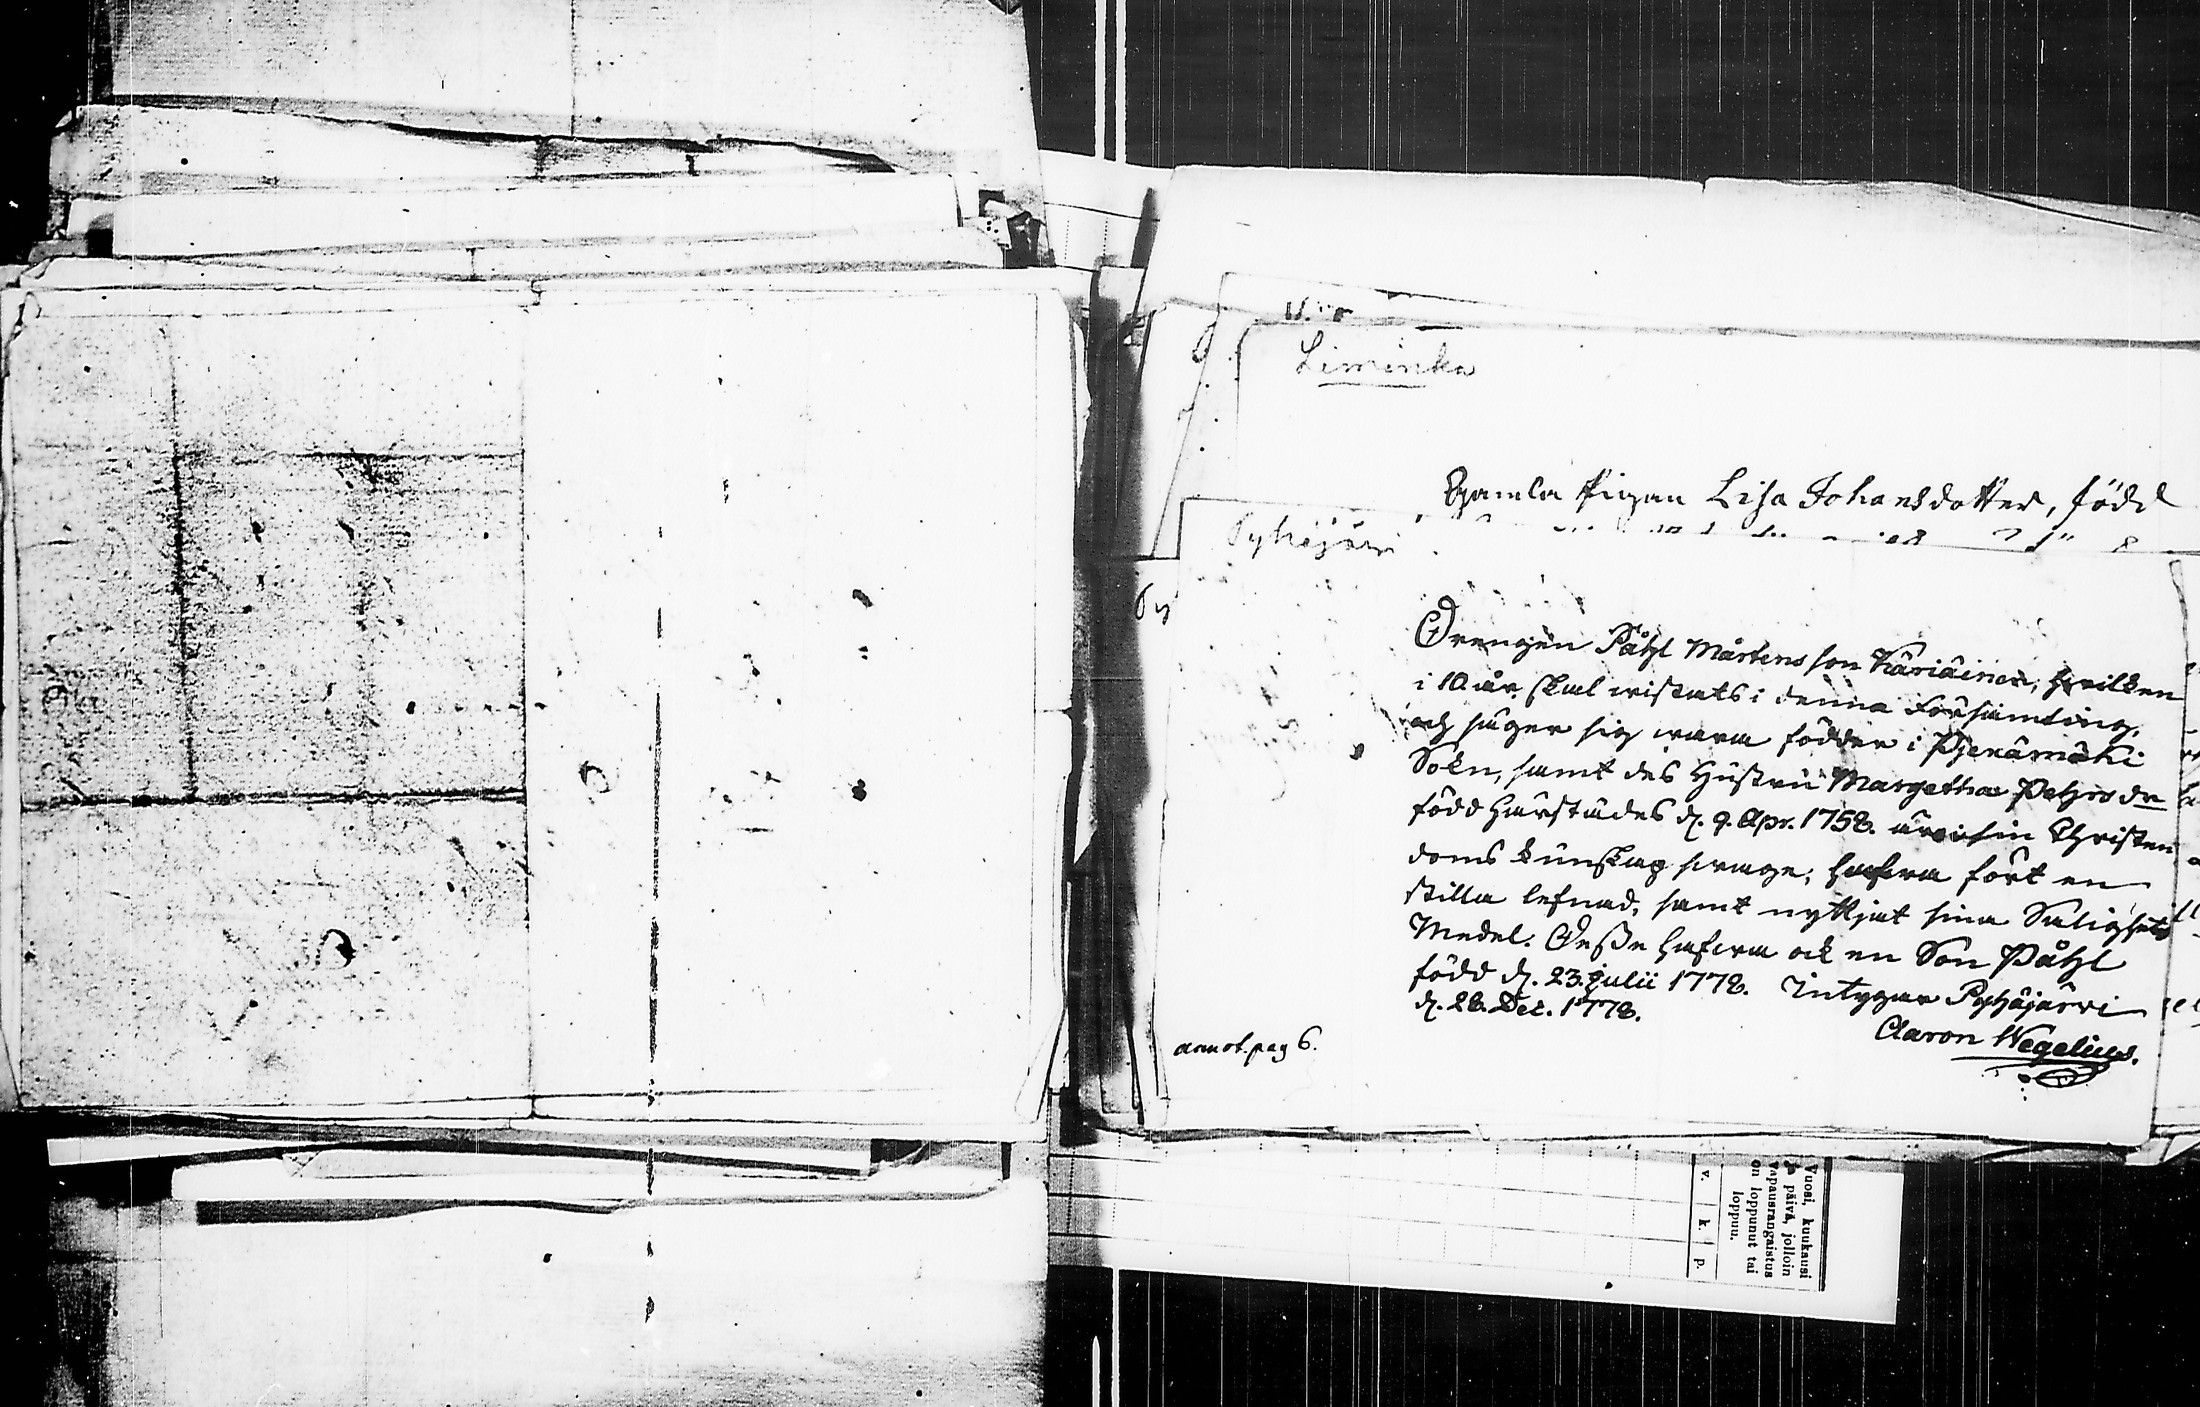 Liminka
Gamla Pigan Lisa Johansdotter, född
Pyhäjärvi
Py
Drengen Påhl Mårtensson Käriäinen, hvilken
i 10 år skal vistats i denna Församling,
och säger sig vara födder i Pjenämäki
Sokn, samt des Hustru Margetha Pehrs dr
född härstädes d. 9. Apr. 1758. äro i sin Christen
doms kunskap svage, hafva fört en
stilla lefnad, samt nyttjat sina Salighets
Medel. Desse hafva ock en Son Påhl
född d. 23. Julii 1778. Intygar Pyhäjärvi
d. 28. Dec. 1778.
Aaron Wegelius.
annot. pag 6.
Vuosi, kuukausi
ja päivä, jolloin
vapausrangaistus
on loppunut tai
loppuu.
v. k. p.